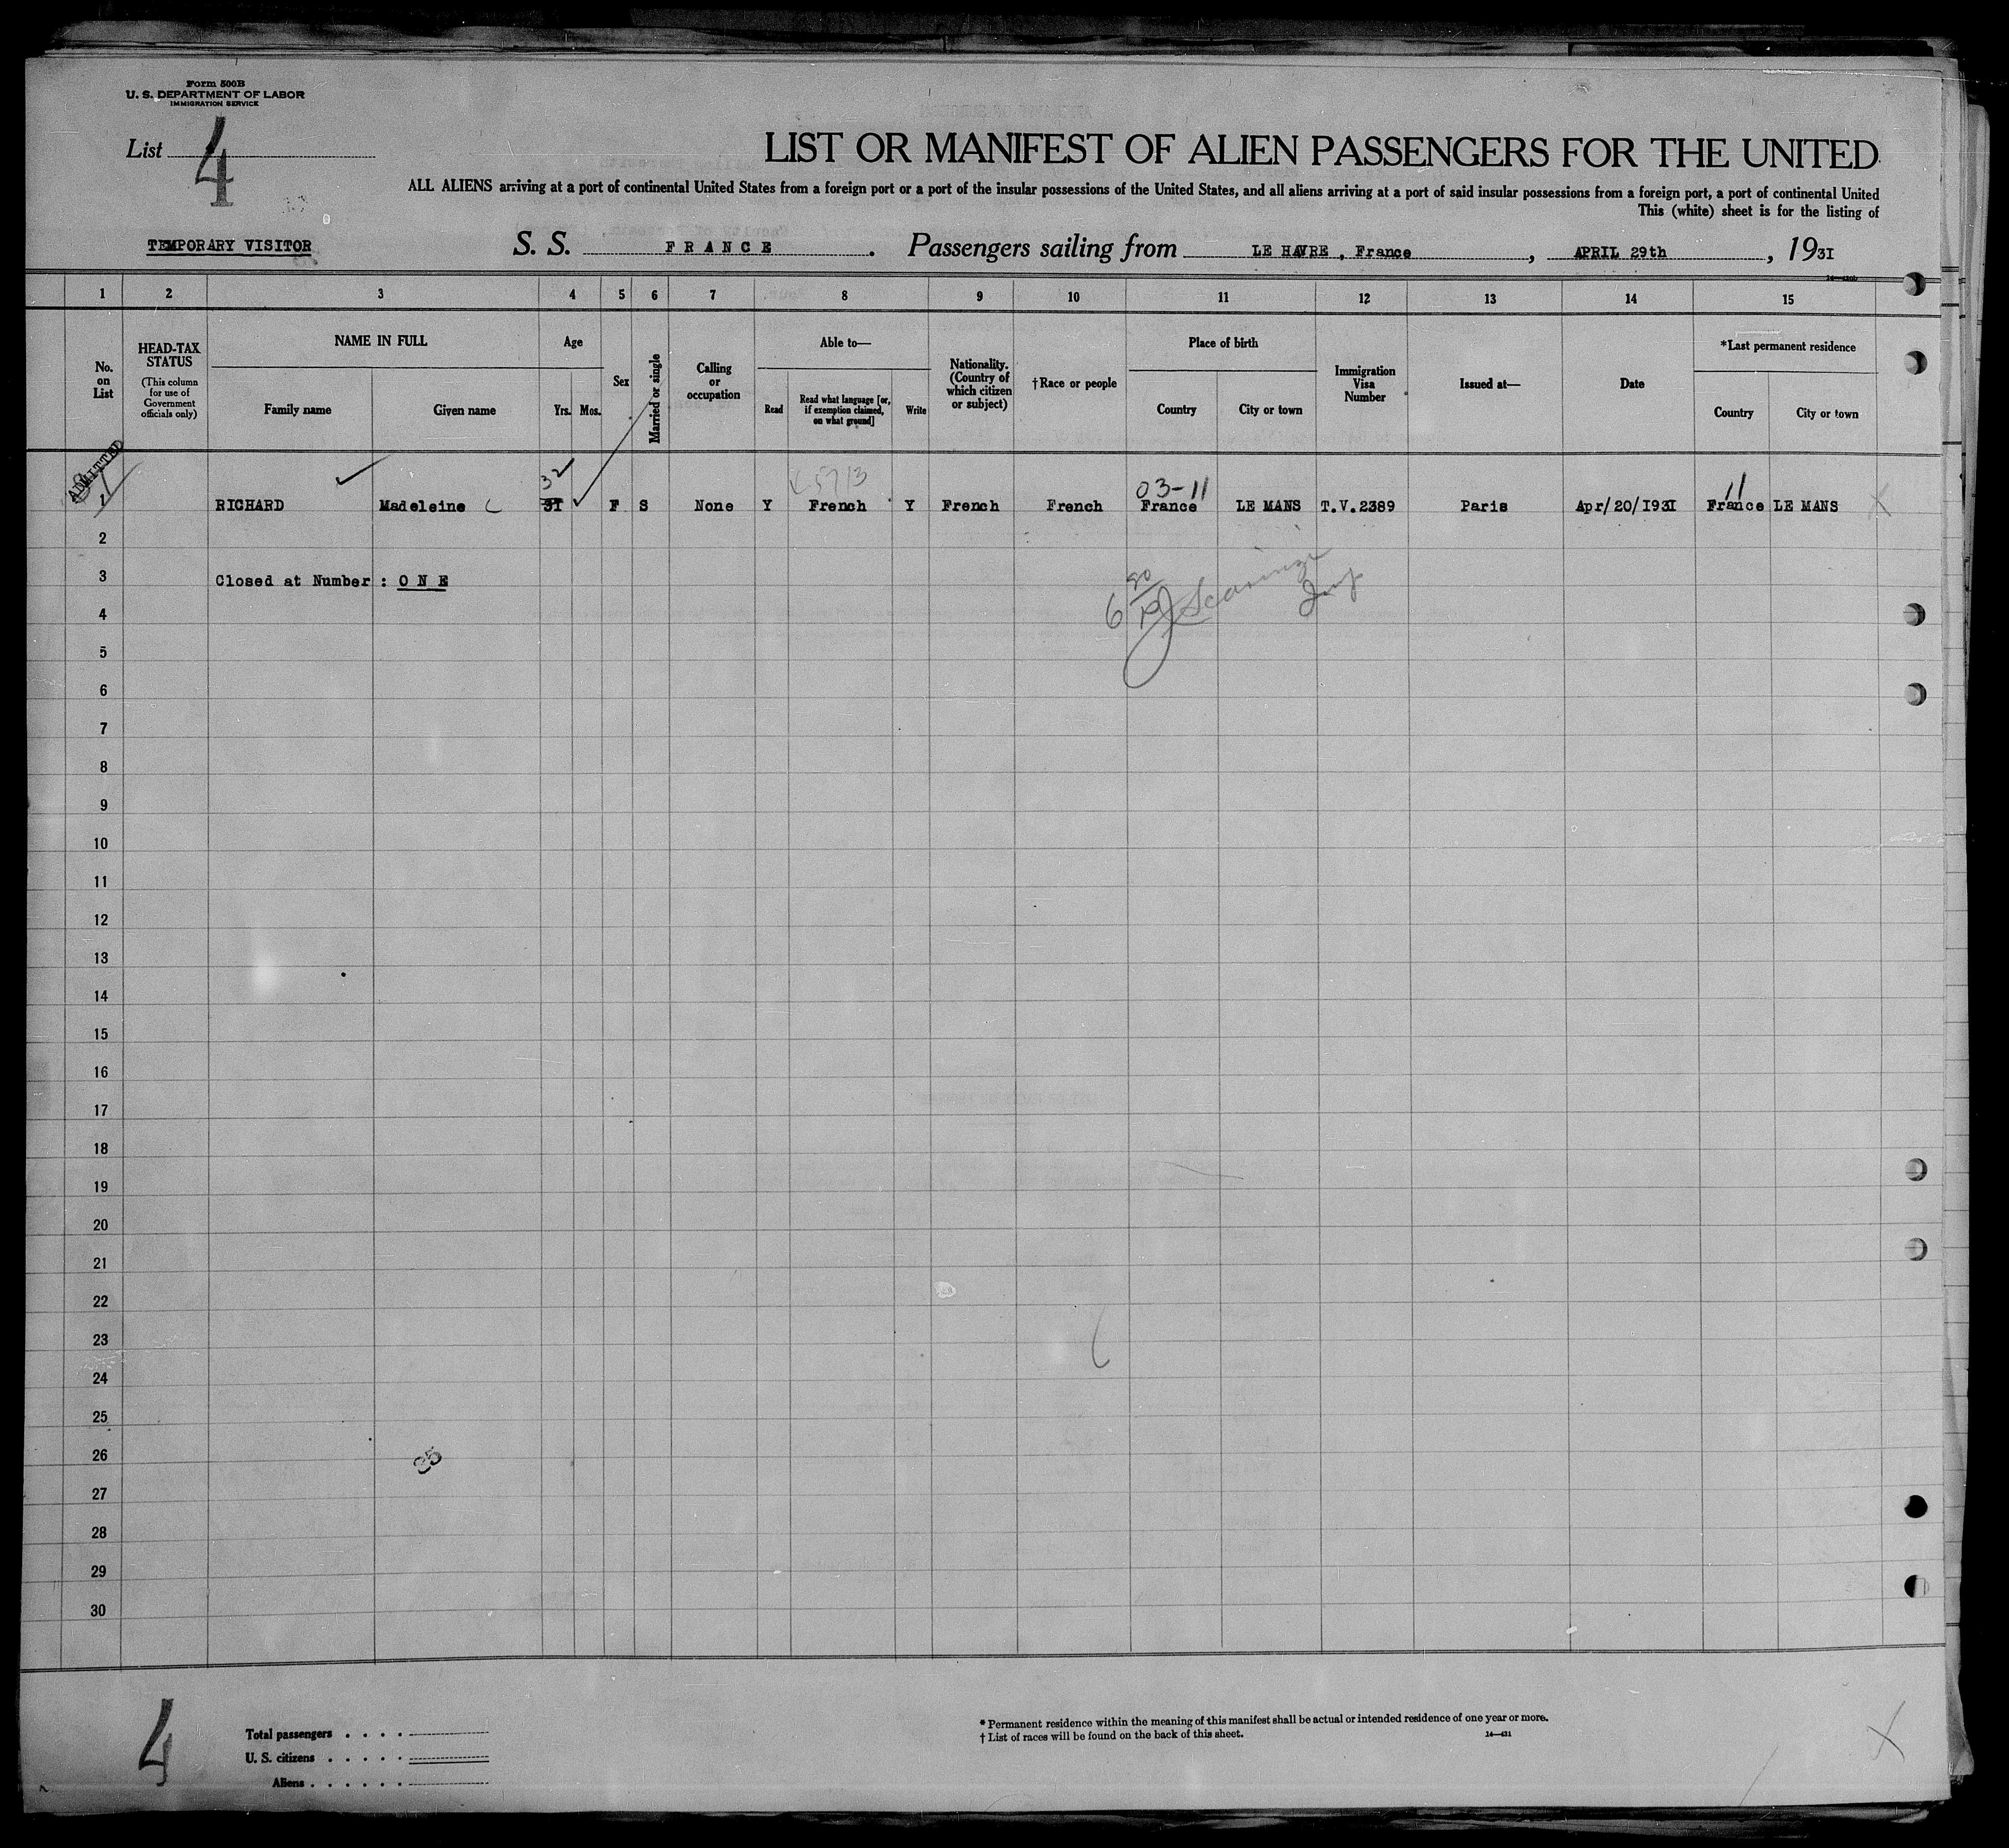 Form 500B
U. S. DEPARTMENT OF LABOR
IMMIGRATION SERVICE
List 4
LIST OR MANIFEST OF ALIEN PASSENGERS FOR THE UNITED
ALL ALIENS arriving at a port of continental United States from a foreign port or a port of the insular possessions of the United States, and all aliens arriving at a port of said insular possessions from a foreign port, a port of continental United
This (white) sheet is for the listing of
TEMPORARY VISITOR S. S. FRANCE. Passengers sailing from LE HAVRE, France, APRIL 29th, 1931
1 2 3 4 5 6 7 8 9 10 11 12 13 14 15
No. on List
HEAD-TAX STATUS
(This column for use of Government officials only)
NAME IN FULL
Family name Given name
Age
Yrs. Mos.
Sex
Married or single
Calling or occupation
Able to—
Read
Read what language [or, if exemption claimed, on what ground]
Write
Nationality. (Country of which citizen or subject)
†Race or people
Place of birth
Country City or town
Immigration Visa Number
Issued at—
Date
*Last permanent residence
Country City or town
ADMITTED
32 03-11 11
RICHARD Madeleine 31 F S None Y French Y French French France LE MANS T.V.2389 Paris Apr/20/1931 France LE MANS
2
3 Closed at Number: ONE
4
5
6
7
8
9
10
11
12
13
14
15
16
17
18
19
20
21
22
23
24
25
26
27
28
29
30
4
Total passengers . . . .
U. S. citizens . . . . .
Aliens . . . . . .
* Permanent residence within the meaning of this manifest shall be actual or intended residence of one year or more.
† List of races will be found on the back of this sheet.
14—431